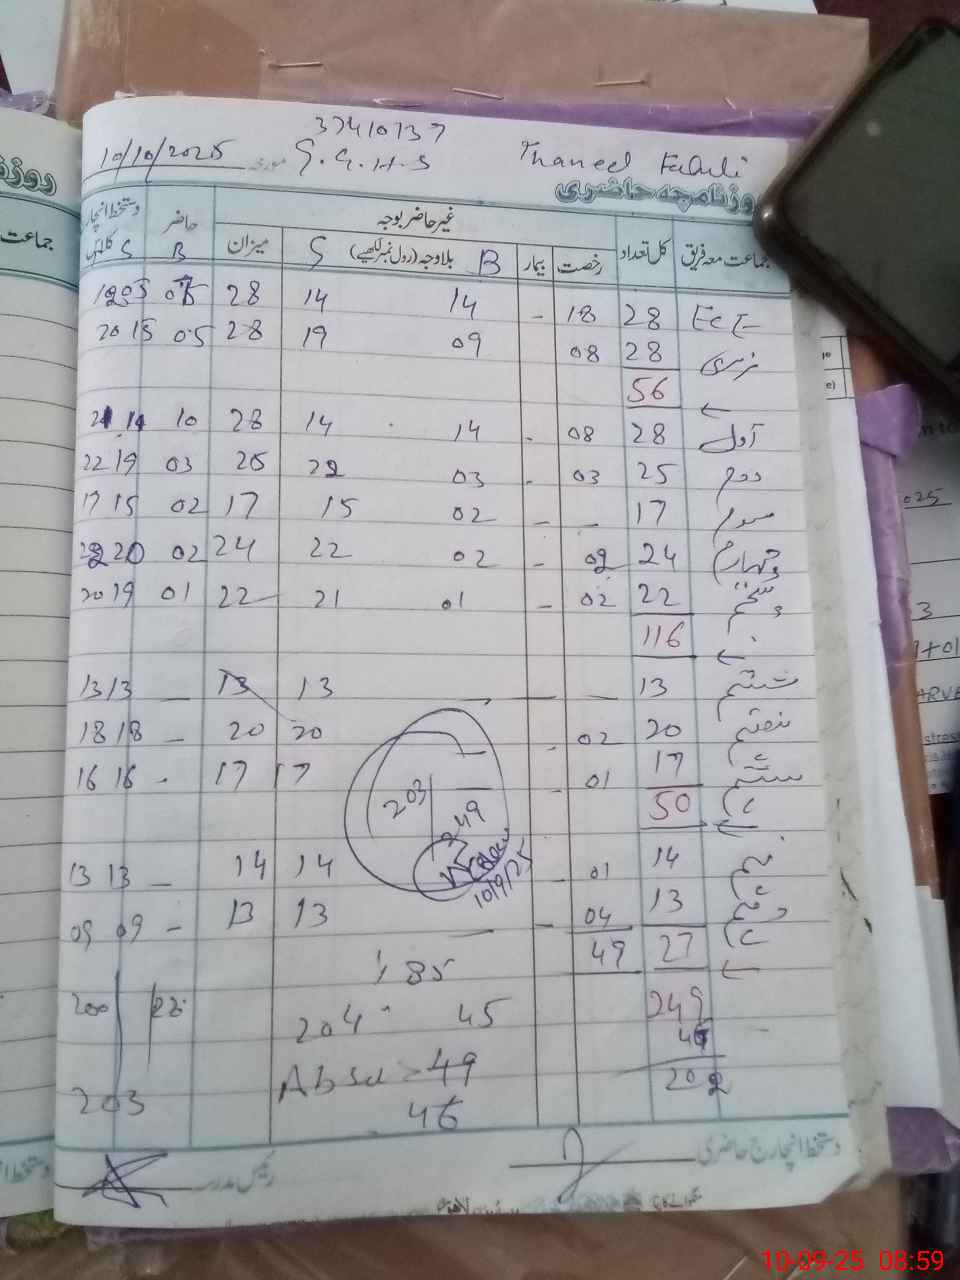 37410737
10/10/2025 مورخہ G.G.H.S Thaneel
روزنامچہ حاضری
جماعت معہ فریق کل تعداد غیر حاضر بوجہ حاضر دستخط انچارج
رخصت بیمار B بلاوجہ (رول نمبر لکھیے) G میزان B G کلاس
ECE 28 18 - 14 14 28
نرسری 28 08 09 19 28 05 15 20
56
اول 28 08 - 14 14 28 10 14
دوم 25 03 - 03 22 25 03 19 22
سوم 17 - - 02 15 17 02 15 17
چہارم 24 02 - 02 22 24 02 20 22
پنجم 22 02 - 01 21 22 01 19 20
116
ششم 13 - - - 13 13 - 13 13
ہفتم 20 02 - 20 20 - 18 18
ہشتم 17 01 - 17 17 - 16 16
50
203
249
10/9/25
نہم 14 01 - 14 14 - 13 13
دہم 13 04 - - 13 13 - 09 09
27 49
185
249 45 204 200
46
202 49
203 46
دستخط انچارج حاضری رئیس مدرسہ
جماعت
025
3
10-09-25 08:59